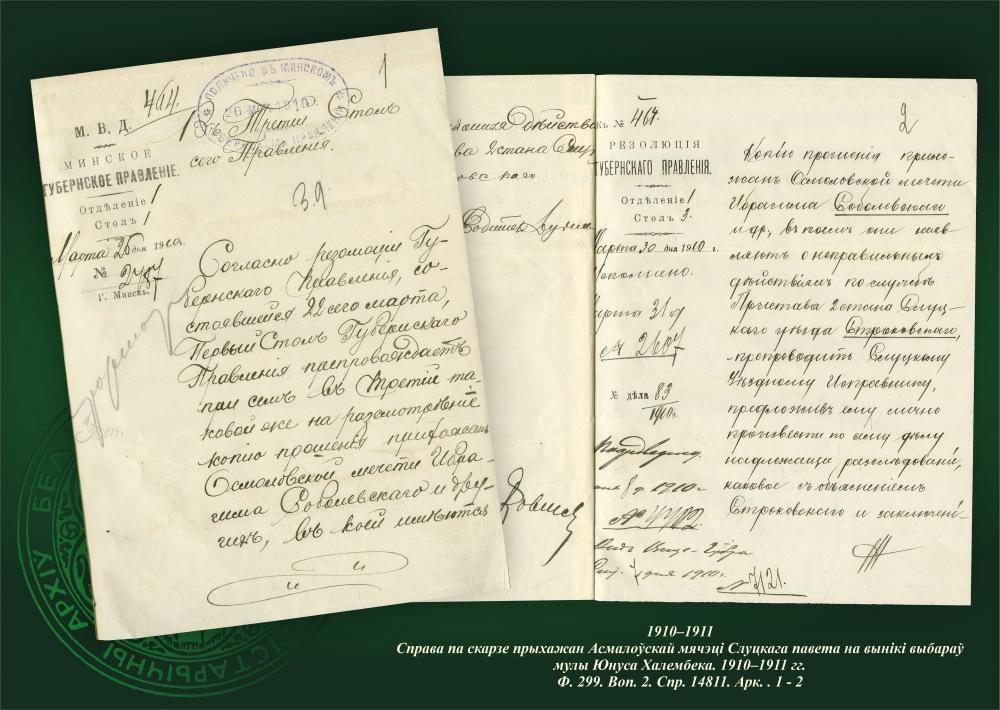 464.
1
ПОЛУЧЕНО ВЪ МИНСКОМЪ
26 МАР 1910
ГУБЕРНСКОМЪ ПРАВЛЕНІИ
М. В. Д.
МИНСКОЕ
ГУБЕРНСКОЕ ПРАВЛЕНІЕ.
Отдѣленіе 1
Столъ 1
Марта 26 дня 1910
№ 2787
Г. Минскъ.
Въ Третій Столъ
сего Правленія.
39
Согласно резолюціи Гу-
бернскаго Правленія, со-
стоявшейся 22 сего марта,
Первый Столъ Губернскаго
Правленія препровождаетъ
при семъ въ Третій та-
ковой же на разсмотрѣніе
копію прошенія прихожанъ
Осмоловской мечети Ибра-
гима Соболевскаго и дру-
гихъ, въ коей имѣются
дѣйств
2 стана
овскаго
къ № 464.
2
РЕЗОЛЮЦІЯ
ГУБЕРНСКАГО ПРАВЛЕНІЯ.
Отдѣленіе 1
Столъ 3.
Марта 30 дня 1910 г.
Исполнено.
арта 31 д
№ 2607
№ дѣла 83
1910 г.
1910 г.
1910 г.
№ 7121.
Копію прошенія прихо-
жанъ Осмоловской мечети
Ибрагима Соболевскаго
и др., въ коемъ они заяв-
ляютъ о неправильныхъ
дѣйствіяхъ по службѣ
Пристава 2 стана Слуц-
каго уѣзда Строковскаго,
-препроводить Слуцкому
Уѣздному Исправнику,
предложивъ ему лично
произвести по сему дѣлу
надлежащее разслѣдованіе,
каковое съ объясненіемъ
Строковскаго и заключені-
1910–1911
Справа па скарзе прыхажан Асмалоўскай мячэці Слуцкага павета на вынікі выбараў
мулы Юнуса Халембека. 1910–1911 гг.
Ф. 299. Воп. 2. Спр. 14811. Арк. . 1 - 2
АРХІЎ БЕ
ІСТАРЫЧНЫ